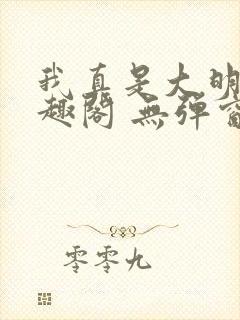 我真是大明
趣閣 無彈窗
零零九